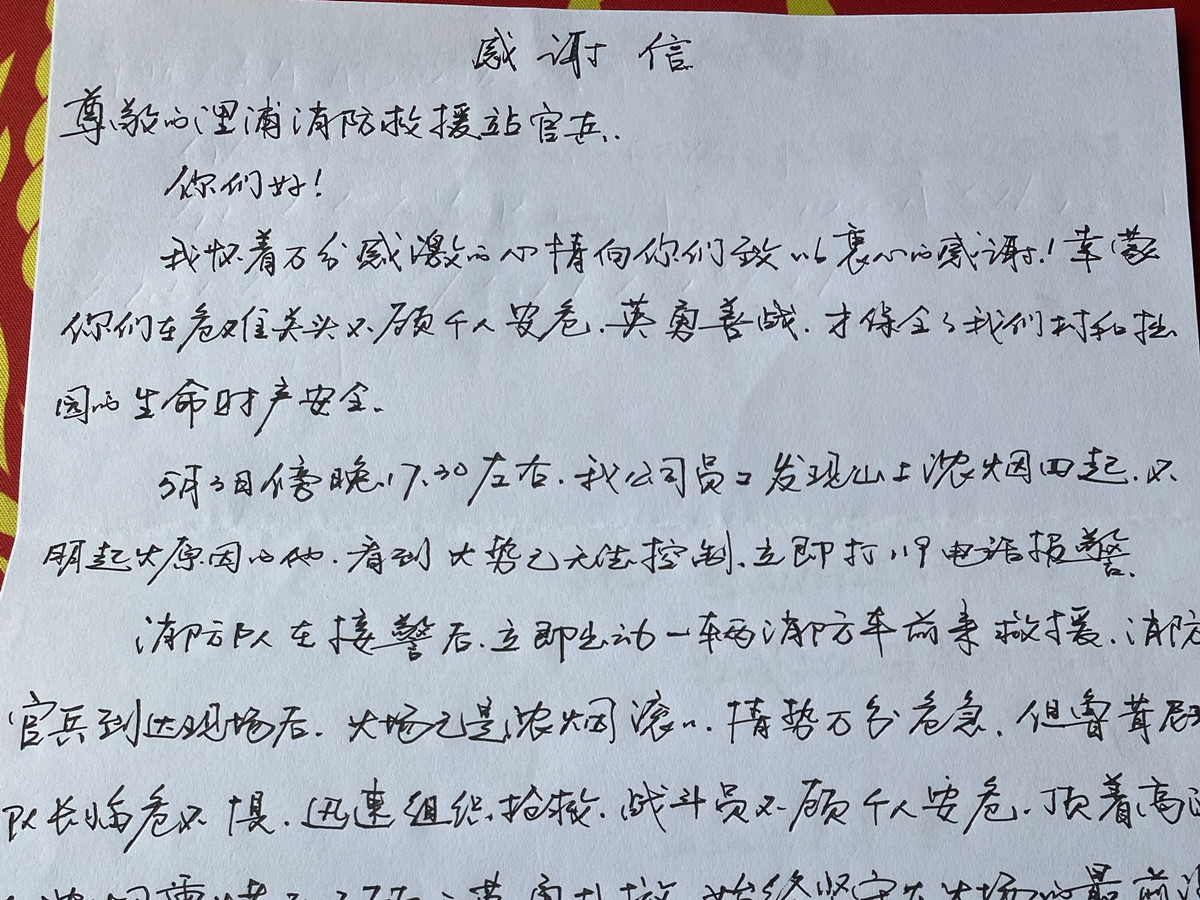 感谢信
尊敬的浬浦消防救援站官兵.
你们好!
我怀着万分感激的心情向你们致以衷心的感谢!幸蒙
你们在危难关头不顾个人安危.英勇善战.才保全了我们村和
园的生命财产安全.
5月3日傍晚17.30左右.我公司员工发现山上浓烟四起.不
明起火原因的他.看到火势已无法控制.立即打119电话报警.
消防队在接警后.立即出动一辆消防车前来救援.消防
官兵到达现场后.火场已是浓烟滚〃.情势万分危急.但鲁茸
队长临危不惧.迅速组织抢救.战斗员不顾个人安危.顶着高
始终坚守在火场的最前